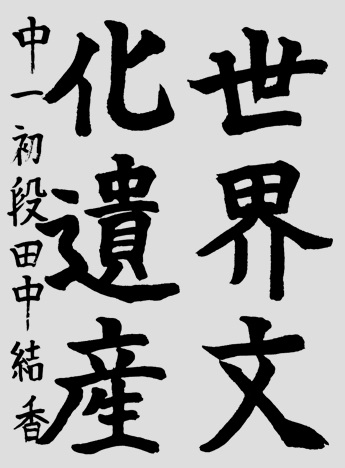 世界文
化遺産
中一初段田中結香